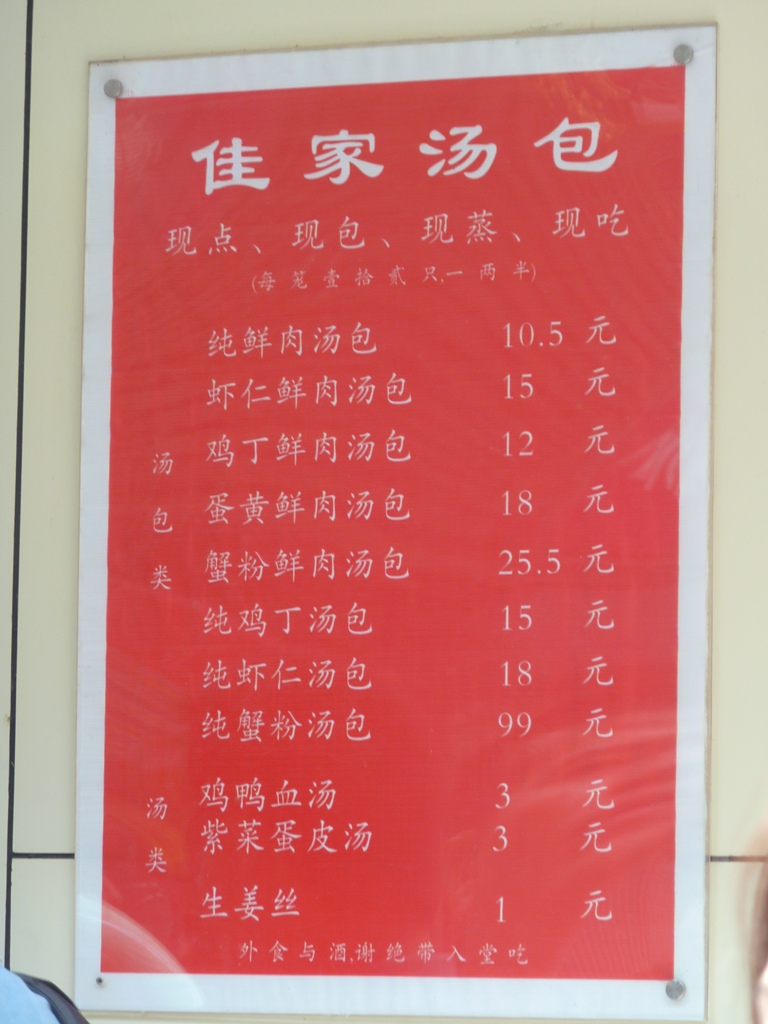 佳家汤包
现点、现包、现蒸、现吃
(每笼壹拾贰只,一两半)
汤包类
纯鲜肉汤包 10.5 元
虾仁鲜肉汤包 15 元
鸡丁鲜肉汤包 12 元
蛋黄鲜肉汤包 18 元
蟹粉鲜肉汤包 25.5 元
纯鸡丁汤包 15 元
纯虾仁汤包 18 元
纯蟹粉汤包 99 元
汤类
鸡鸭血汤 3 元
紫菜蛋皮汤 3 元
生姜丝 1 元
外食与酒,谢绝带入堂吃